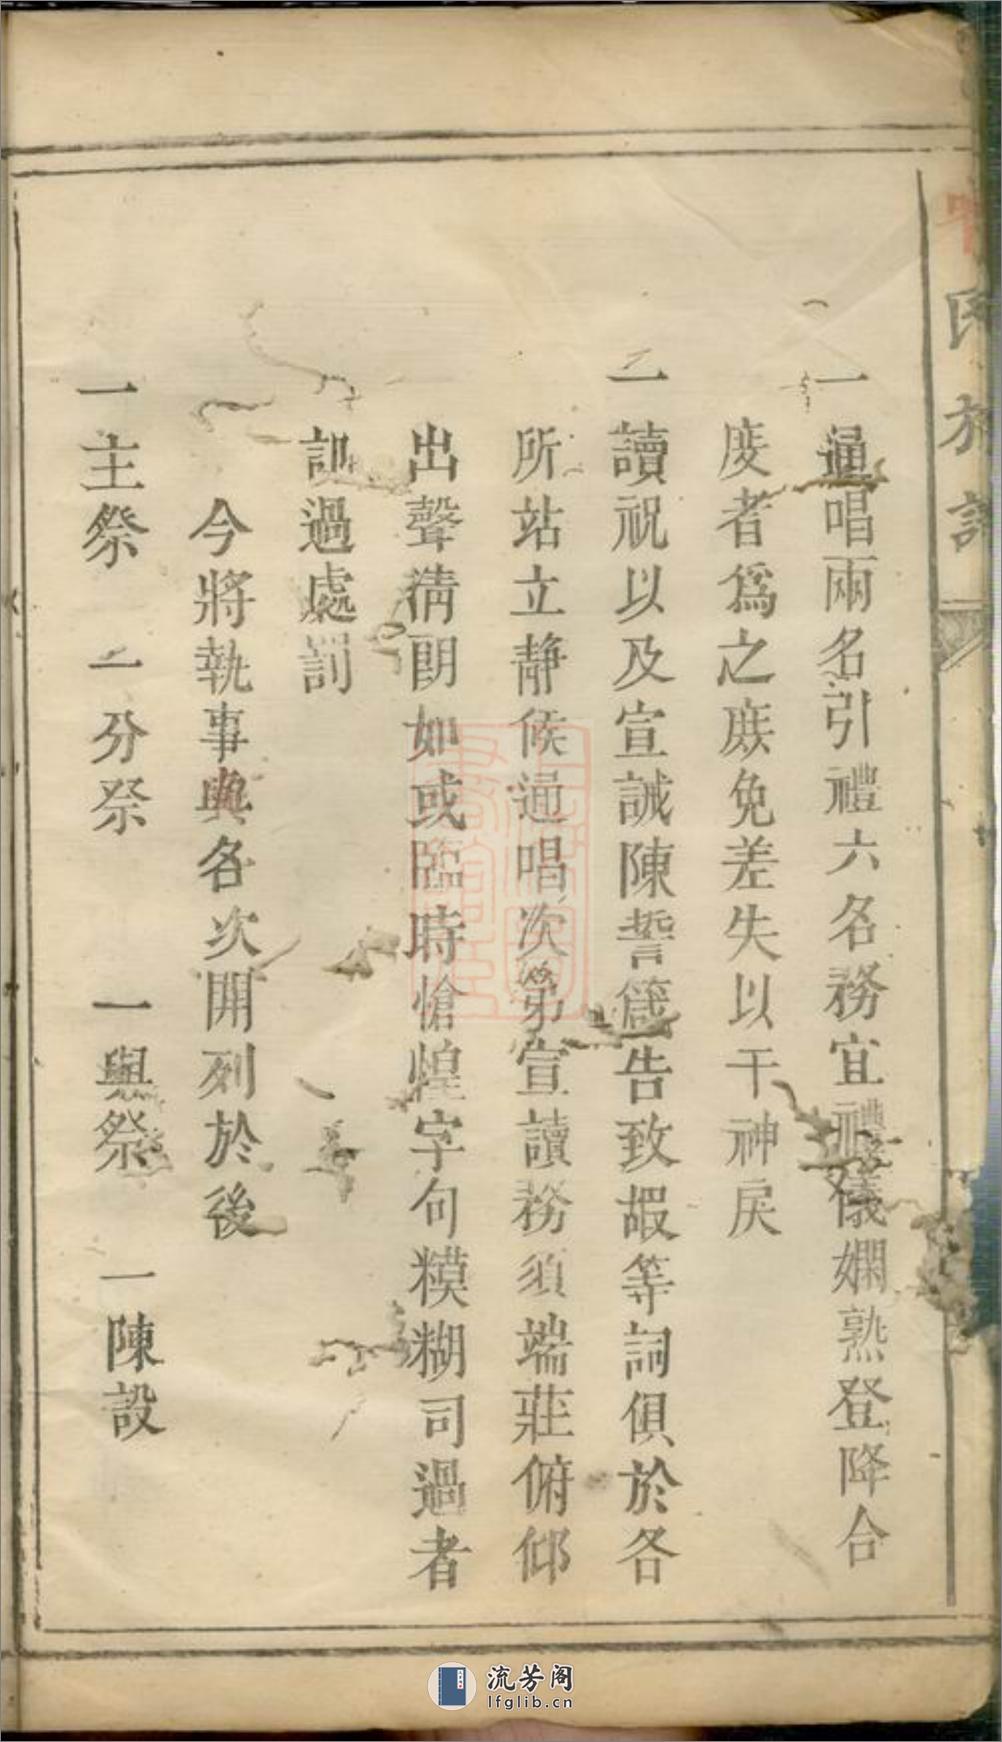 氏族譜
一通唱兩名引禮六名務宜禮儀嫻熟登降合
度者爲之庶免差失以干神戾
一讀祝以及宣誡陳誓箴告致嘏等詞俱於各
所站立静候通唱次第宣讀務須端莊俯仰
出聲清朗如或臨時愴惶字句糢糊司過者
訓過處罰
今將執事典各次開列於後
一主祭 一分祭 一與祭 一陳設
流芳阁
lfglib.cn